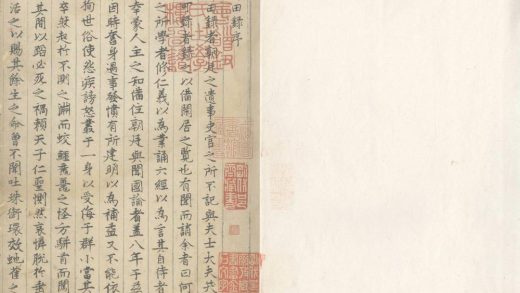 田錄序
田錄者朝廷之遺事史官之所不記與夫士大夫
可錄者錄之以備閒居之覽也有聞而誚余者曰何
之所學者修仁義以為業誦六經以為言其自待者
幸蒙人主之知備位朝廷與聞國論者蓋八年于茲
因時奮身遇事發憤有所建明以為補益又不能依
徇世俗使怨疾謗怒叢于一身以受侮于群小當其
卒然起於不測之淵而蛟鱷黿鼉之怪方駢首而闖
其間以蹈必死之禍賴天子仁聖惻然哀憐脫於垂
活之以賜其餘生之命曾不聞吐珠銜環效蛇雀之